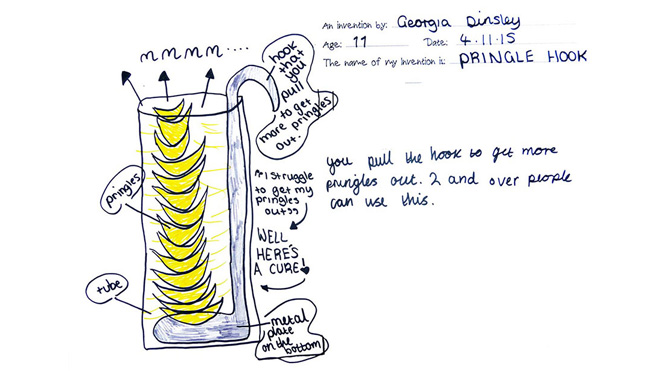 An invention by: Georgia Dinsley
Age: 11 Date: 4.11.15
The name of my invention is: PRINGLE HOOK
mmmm....
hook
that
you
pull
to get
more pringles
out.
pringles
"I struggle
to get my
pringles
out"
WELL
HERE'S
A CURE!
tube
metal
plate
on the
bottom
you pull the hook to get more
pringles out. 2 and over people
can use this.